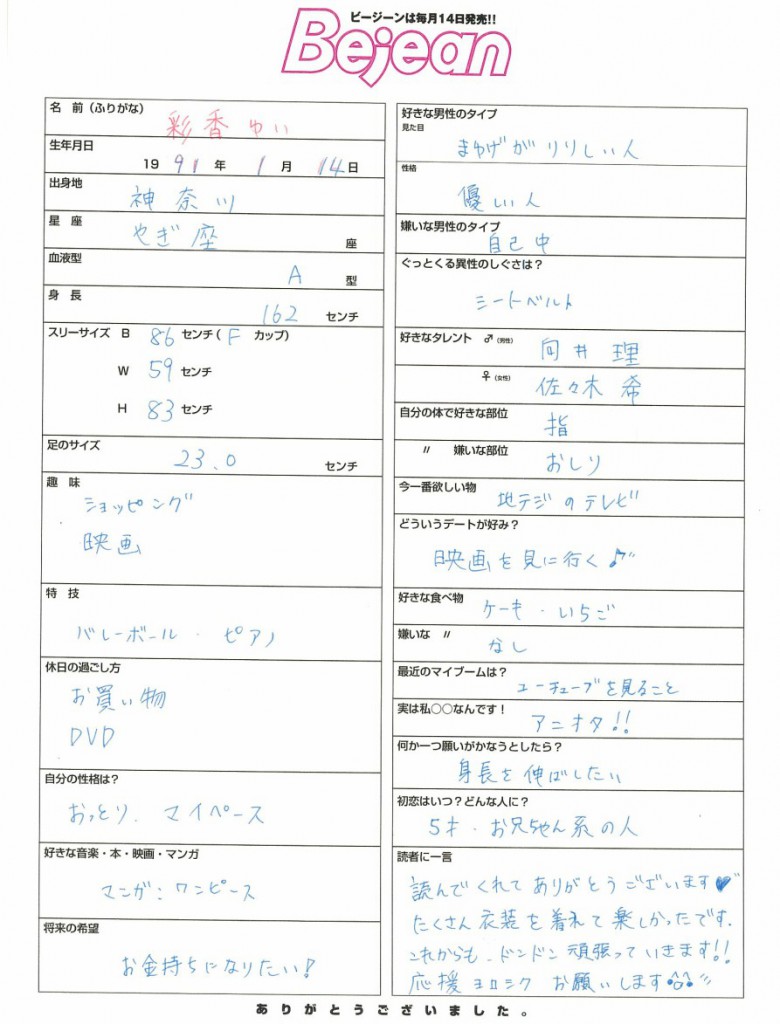 ビージーンは毎月14日発売!!
Bejean
名 前 (ふりがな)
彩香ゆい
生年月日
19 91 年 1 月 14 日
出身地
神奈川
星 座
やぎ座 座
血液型
A 型
身 長
162 センチ
スリーサイズ B 86 センチ ( F カップ)
W 59 センチ
H 83 センチ
足のサイズ
23.0 センチ
趣 味
ショッピング
映画
特 技
バレーボール . ピアノ
休日の過ごし方
お買い物
DVD
自分の性格は?
おっとり. マイペース
好きな音楽・本・映画・マンガ
マンガ: ワンピース
将来の希望
お金持ちになりたい!
好きな男性のタイプ
見た目
まゆげがりりしい人
性格
優しい人
嫌いな男性のタイプ
自己中
ぐっとくる異性のしぐさは?
シートベルト
好きなタレント ♂ (男性) 向井 理
♀ (女性) 佐々木 希
自分の体で好きな部位
指
〃 嫌いな部位
おしり
今一番欲しい物
地デジのテレビ
どういうデートが好み?
映画を見に行く♪
好きな食べ物
ケーキ・いちご
嫌いな 〃
なし
最近のマイブームは?
ユーチューブを見ること
実は私○○なんです!
アニオタ!!
何か一つ願いがかなうとしたら?
身長を伸ばしたい
初恋はいつ?どんな人に?
5才・お兄ちゃん系の人
読者に一言
読んでくれてありがとうございます♥
たくさん衣装を着れて楽しかったです.
これからも、ドンドン頑張っていきます!!
応援ヨロシクお願いします
ありがとうございました。